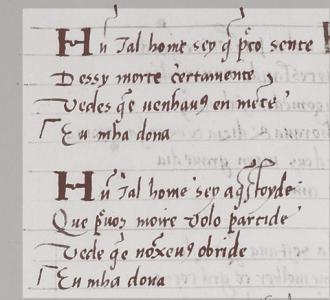 Hũ Tal home sey q̃ p̃to sente
Dessy morte c̃ertamente
Vedes q̃e uenhauꝯ en mẽte
Eu mha dona
Hũ Tal home sey aq̃stoyde
Que p̃uoꝫ moire volo partide
Vede q̃e nõxeuꝯ obride
Eu mha dona